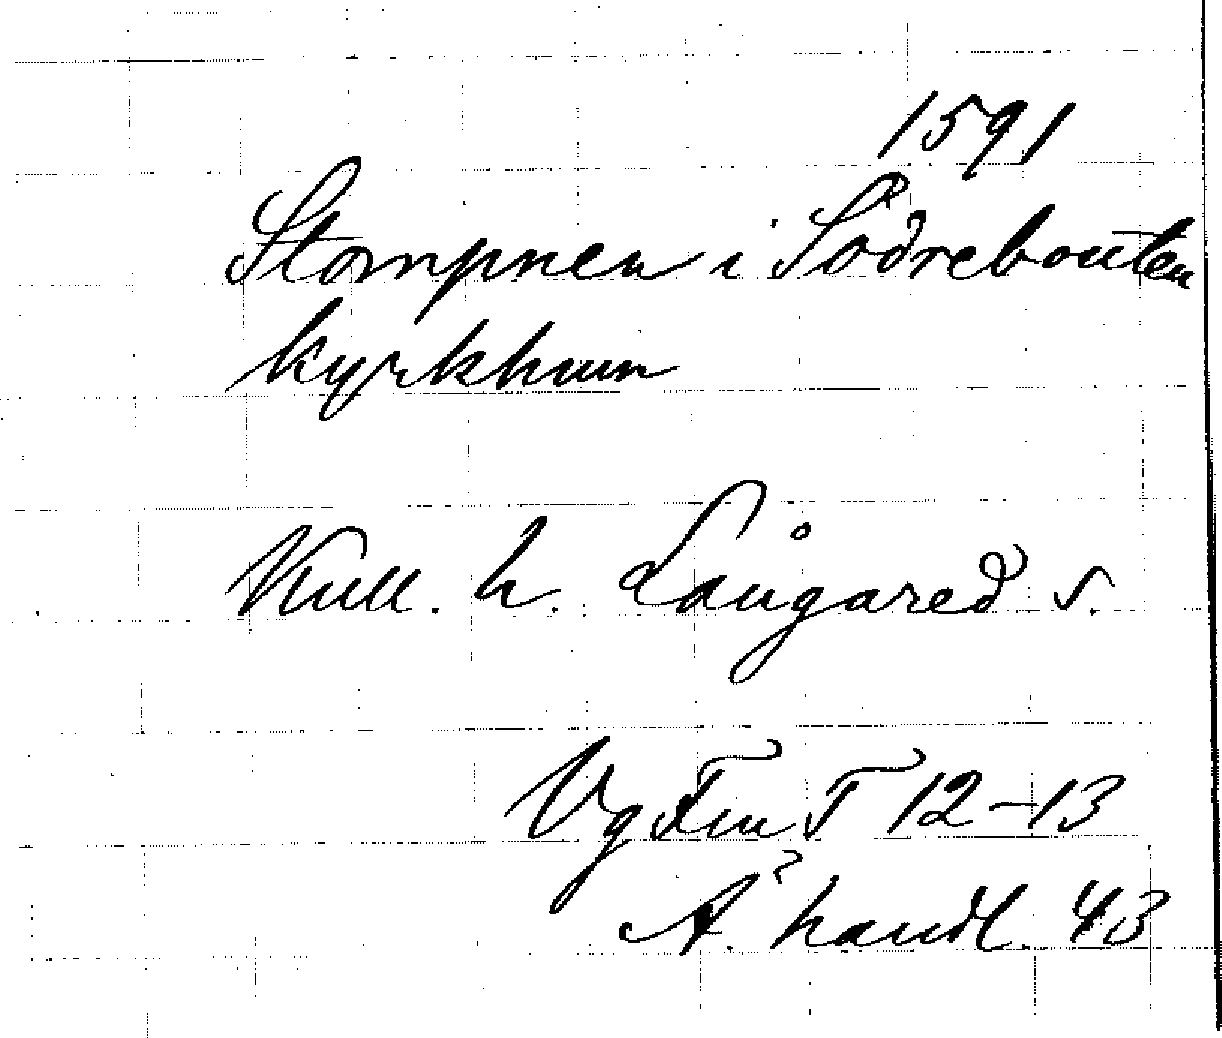 1591
Stompnen i Södrebouten
kyrkhwn
Kull. h. Långared s.
Vg Fm T 12-13
A² handl. 43